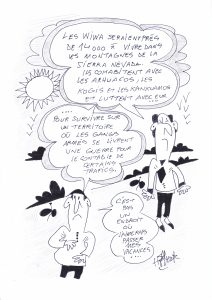 LES WIWA SERAIENT PRÈS
DE 14000 À VIVRE DANS
LES MONTAGNES DE LA
SIERRA NEVADA.
ILS COHABITENT AVEC
LES ARHUACOS, LES
KOGIS ET LES KANKUAMOS
ET LUTTENT AVEC EUX
...
POUR SURVIVRE SUR
UN TERRITOIRE
OÙ LES GANGS
ARMÉS SE LIVRENT
UNE GUERRE POUR
LE CONTRÔLE DE
CERTAINS
TRAFICS.
C'EST
PAS UN
ENDROIT
OÙ
J'IRAIS
PASSER
MES
VACANCES
...